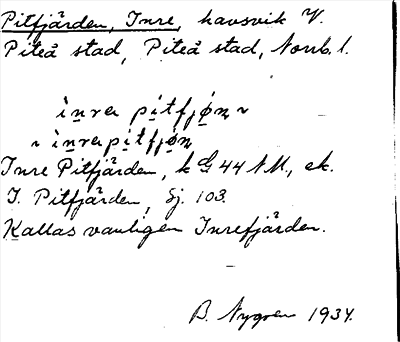 Pitfjärden, Inre, havsvik V.
Piteå stad, Piteå stad, Norrb. l.
ìnrer pitfjøṇ ~
~ ìnrepitfjøṇ
Inre Pitfjärden, k G 44 NM, ek.
I. Pitfjärden, Sj. 103.
Kallas vanligen Inrefjärden.
B. Nygren 1934.